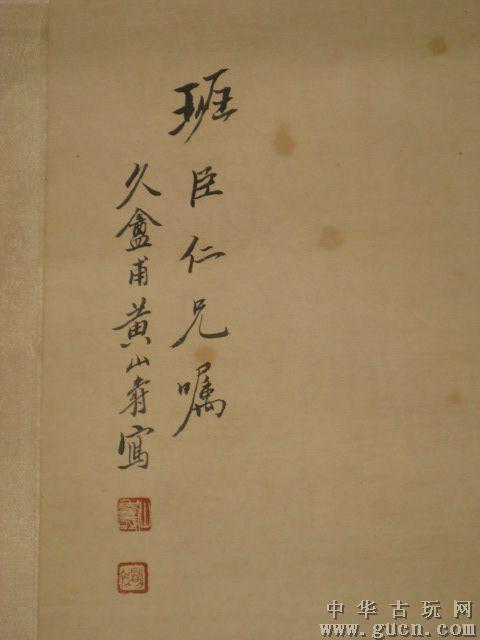 班臣仁兄嘱
久盦甫黄山寿寫
中华古玩网
www.gucn.com